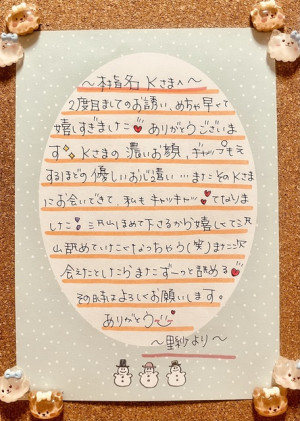 〜本指名 Kさまへ〜
2度目ましてのお誘い、めちゃ早くて
嬉しすぎました❤ありがとうございま
す✨Kさまの濃いお顔、ギャップもえ
するほどの優しいお心遣い…またそのKさま
にお会いできて、私もキャッキャッ❤てなりま
した！沢山ほめて下さるから嬉しくて沢
山舐めていたくなっちゃう(笑)また次
会えたとしたらまたずーっと舐める❤
その時はよろしくお願いします。
ありがとう
〜里紗より〜